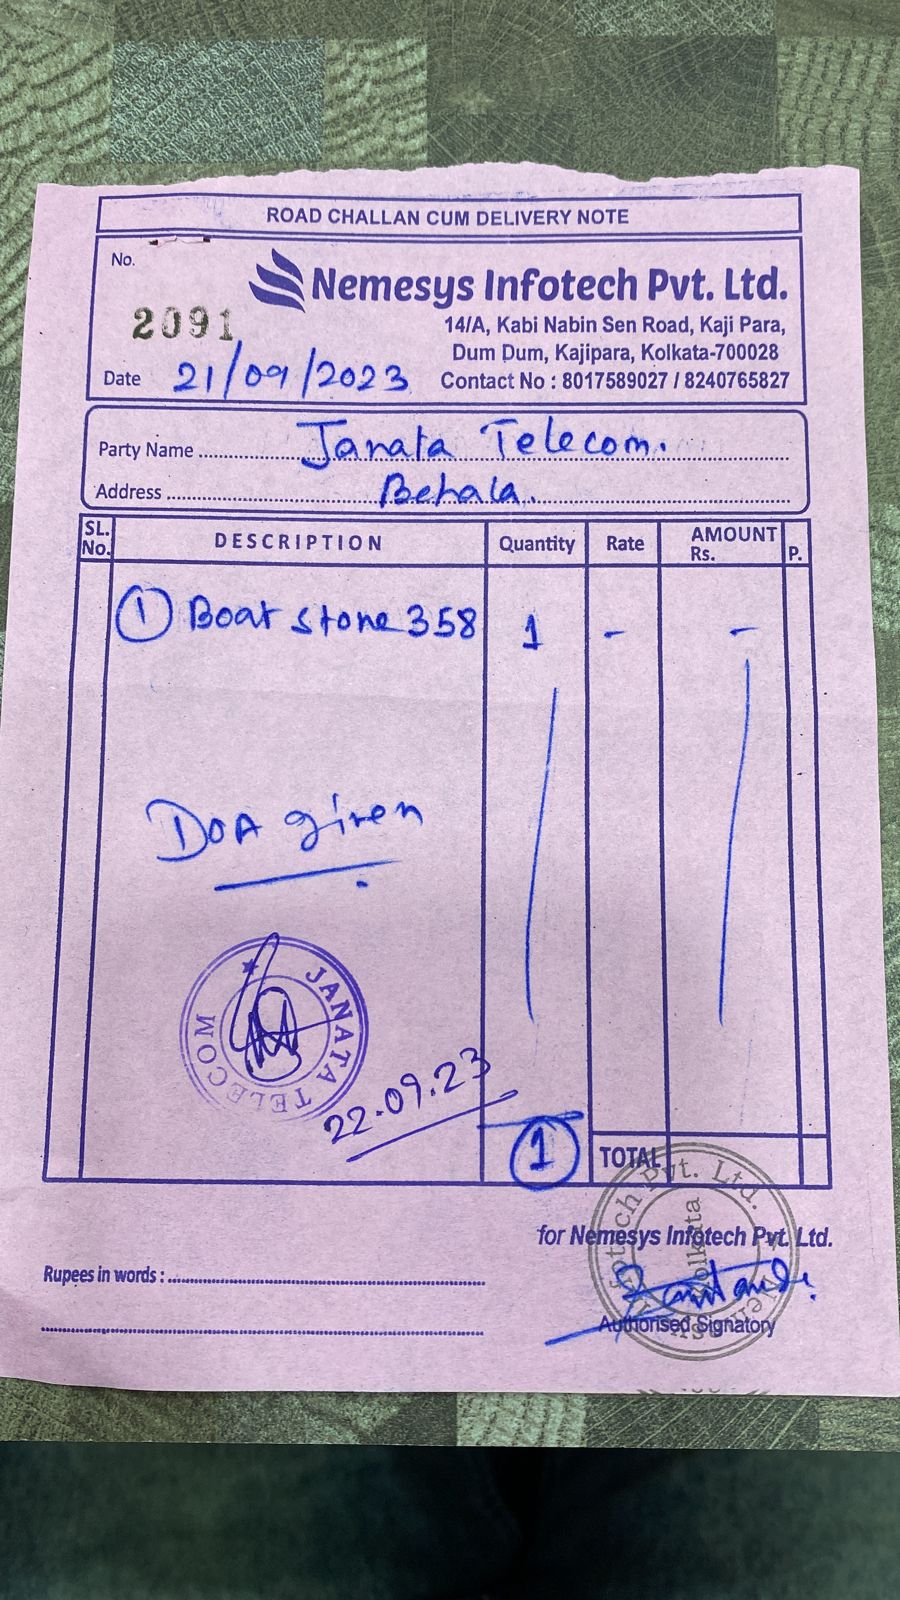 ROAD CHALLAN CUM DELIVERY NOTE
No.
2091
Nemesys Infotech Pvt. Ltd.
14/A, Kabi Nabin Sen Road, Kaji Para,
Dum Dum, Kajipara, Kolkata-700028
Contact No : 8017589027 / 8240765827
Date 21/09/2023
Party Name Janata Telecom.
Address Behala.
SL. No. DESCRIPTION Quantity Rate AMOUNT Rs. P.
① Boat stone 358 1 - -
DOA given
JANATA TELECOM
22.09.23
1 TOTAL
for Nemesys Infotech Pvt. Ltd.
Rupees in words :
Nemesys Infotech Pvt. Ltd.
Kolkata
Authorised Signatory